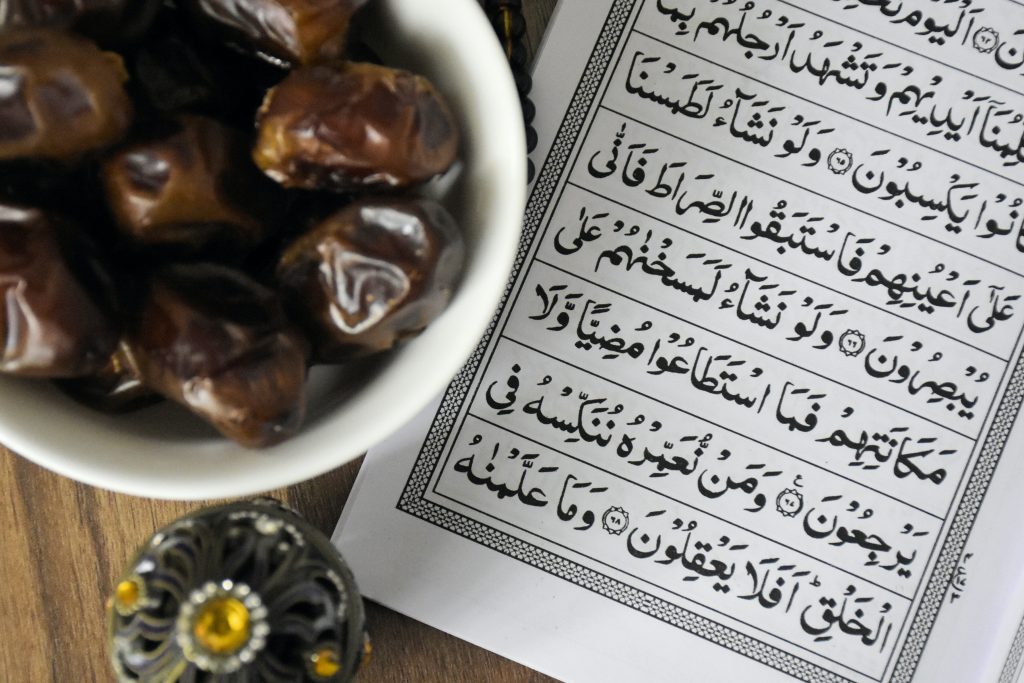 وْنَ ﴿٦٤﴾ اَلْيَوْمَ
لِّمُنَاۤ اَيْدِيْهِمْ وَ تَشْهَدُ اَرْجُلُهُمْ بِمَا
كَانُوْا يَكْسِبُوْنَ ﴿٦٥﴾ وَلَوْ نَشَآءُ لَطَمَسْنَا
عَلٰۤى اَعْيُنِهِمْ فَاسْتَبَقُوا الصِّرَاطَ فَاَنّٰى
يُبْصِرُوْنَ ﴿٦٦﴾ وَلَوْ نَشَآءُ لَمَسَخْنٰهُمْ عَلٰى
مَكَانَتِهِمْ فَمَا اسْتَطَاعُوْا مُضِيًّا وَّلَا
يَرْجِعُوْنَ ﴿٦٧﴾ وَمَنْ نُّعَمِّرْهُ نُنَكِّسْهُ فِى
الْخَلْقِ اَفَلَا يَعْقِلُوْنَ ﴿٦٨﴾ وَمَا عَلَّمْنٰهُ